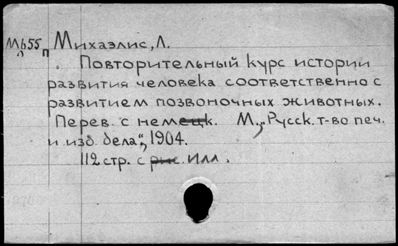 М655 п Михаэлис, Л.
Повторительный курс истории
развития человека соответственно с
развитием позвоночных животных.
Перев. с немецк. М., „Русск. т-во печ.
и изд. дела", 1904.
112 стр. с рис. илл.